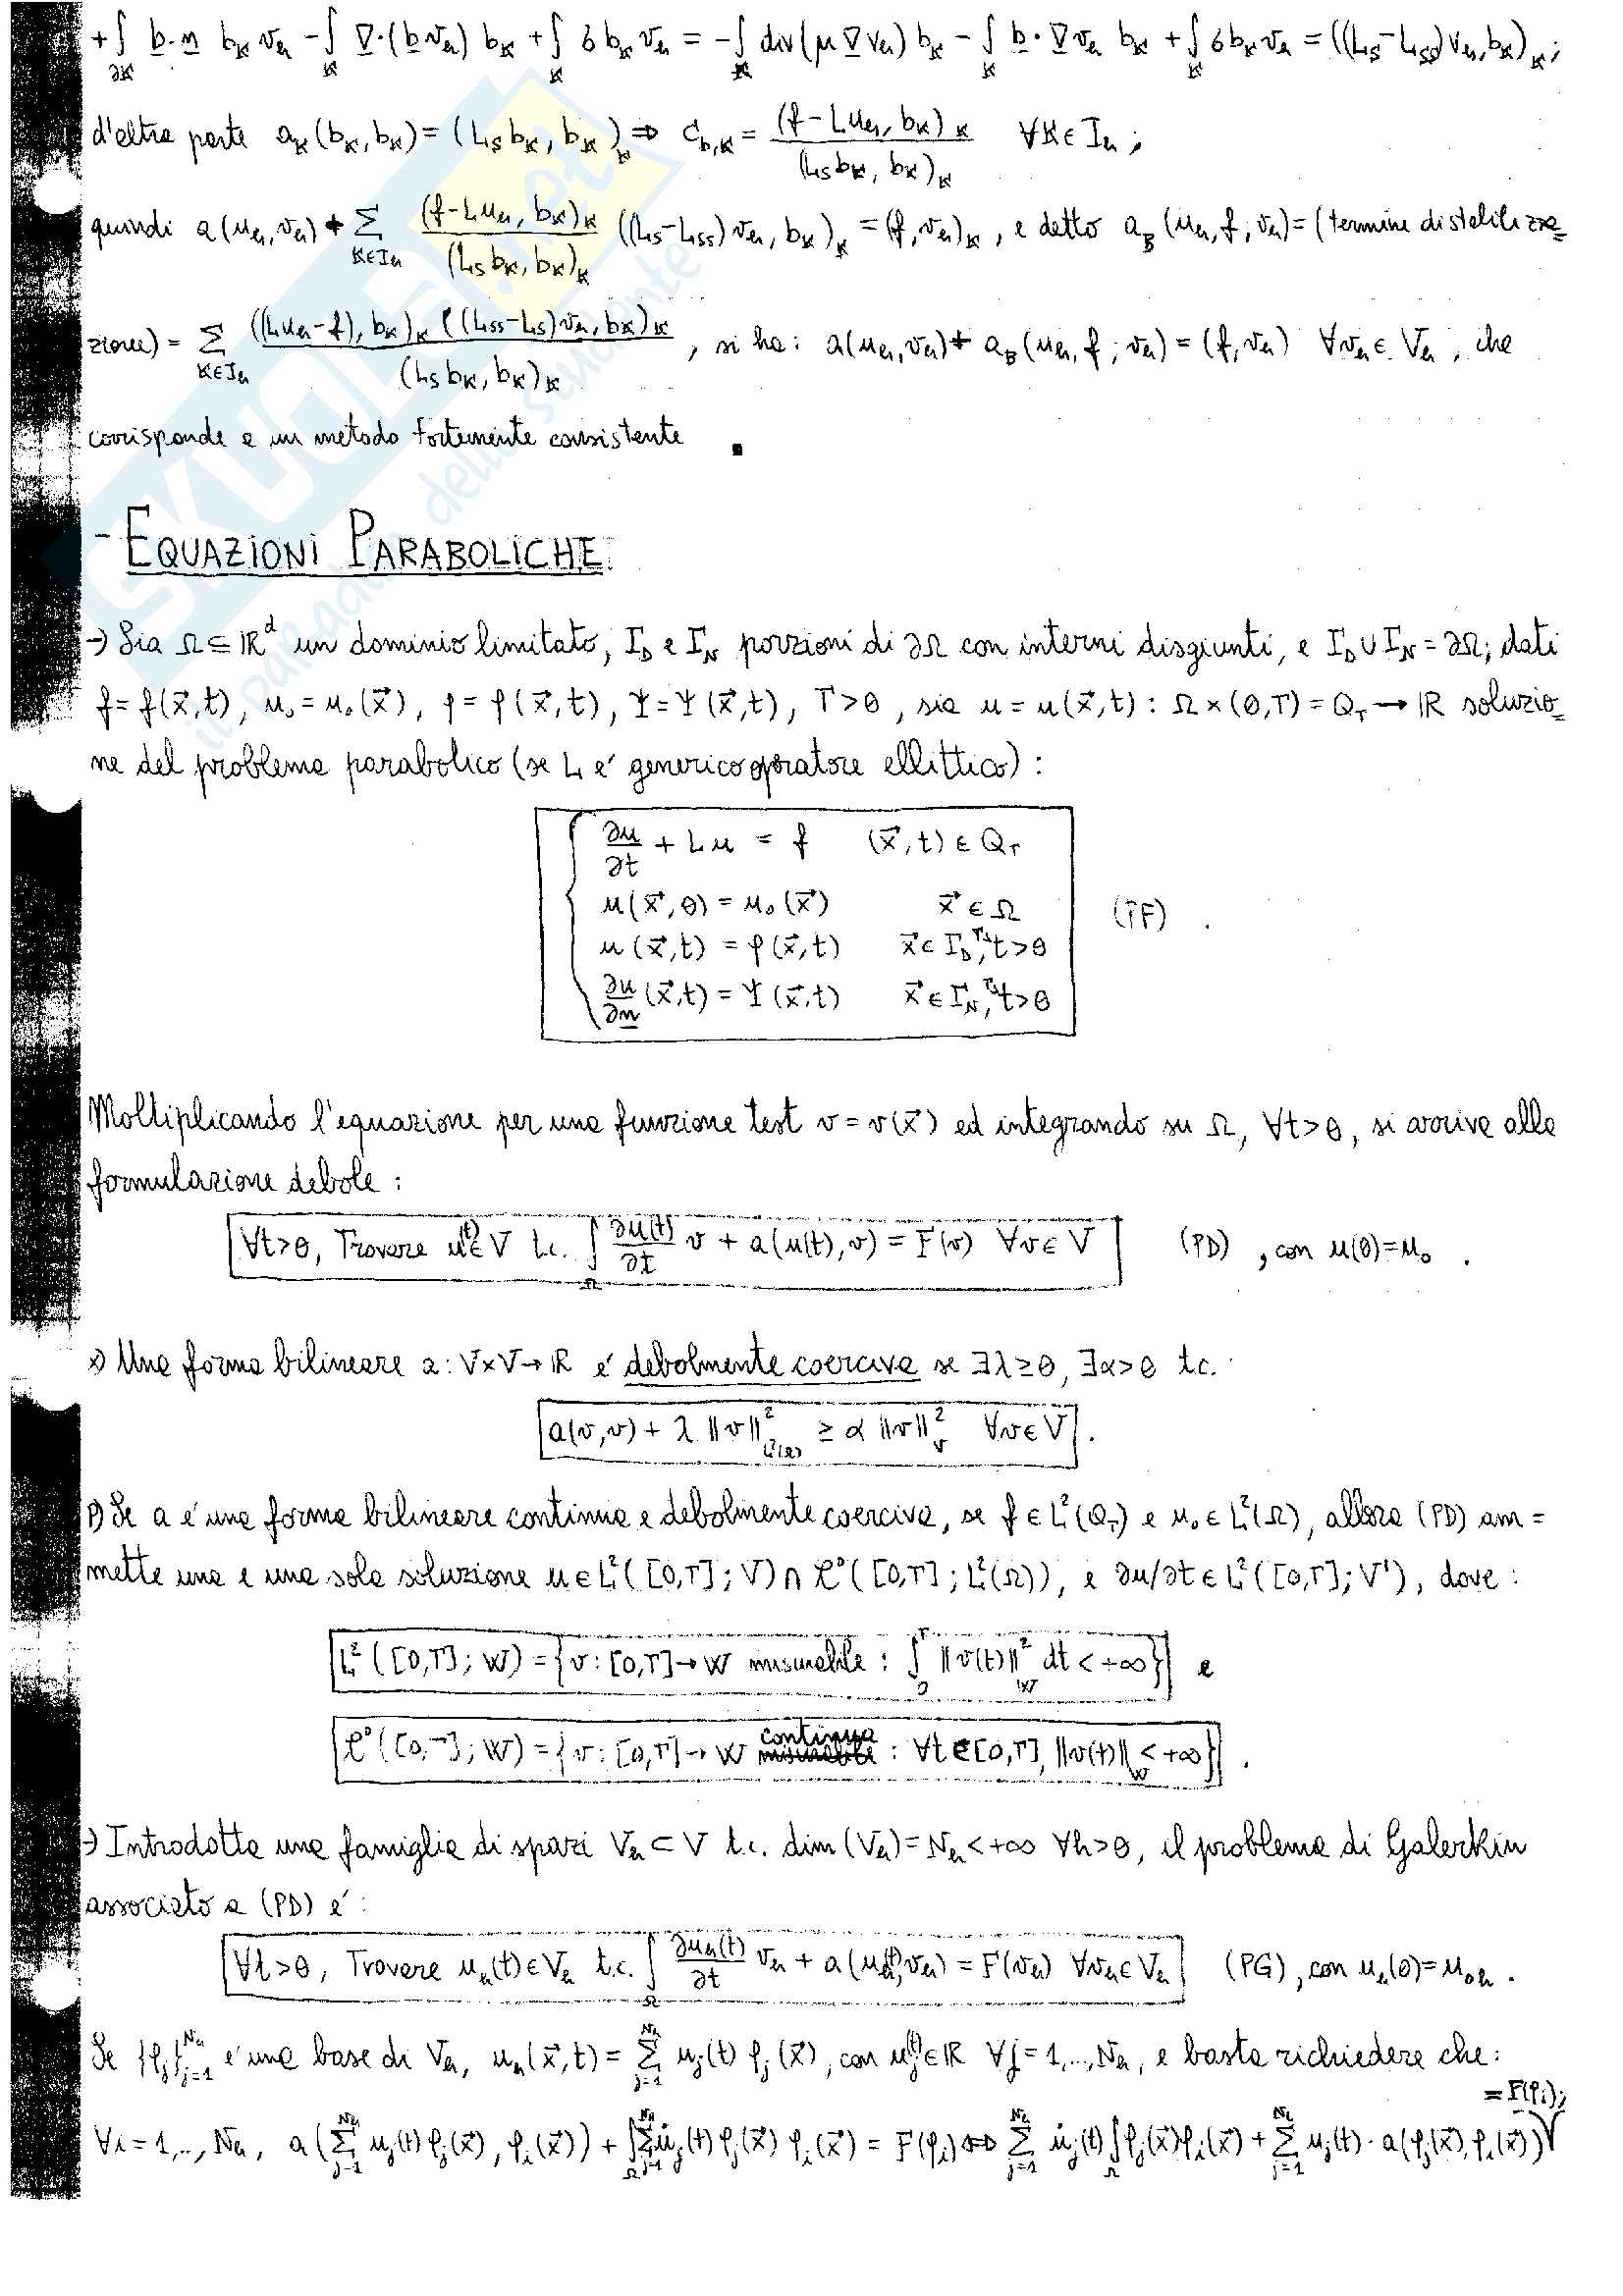 +∫_∂K b·n b_K v_h − ∫_K ∇·(b v_h) b_K + ∫_K б b_K v_h = −∫_K div(μ∇v_h) b_K − ∫_K b·∇v_h b_K + ∫_K б b_K v_h = ((L_S−L_SS)v_h, b_K)_K;
d'altra parte a_K(b_K, b_K) = (L_S b_K, b_K)_K ⇒ C_b,K = (f−Lu_h, b_K)_K / (L_S b_K, b_K)_K ∀K∈I_h;
quindi a(u_h, v_h) + Σ_K∈I_h (f−Lu_h, b_K)_K / (L_S b_K, b_K)_K ((L_S−L_SS)v_h, b_K)_K = (f, v_h)_K, e detto a_B(u_h, f; v_h) = (termine di stabilizza=
zione) = Σ_K∈I_h ((Lu_h−f), b_K)_K ((L_SS−L_S)v_h, b_K)_K / (L_S b_K, b_K)_K, si ha: a(u_h, v_h) + a_B(u_h, f; v_h) = (f, v_h) ∀v_h∈V_h, che
corrisponde a un metodo fortemente consistente ▪
- EQUAZIONI PARABOLICHE
→) Sia Ω⊆ℝ^d un dominio limitato, Γ_D e Γ_N porzioni di ∂Ω con interni disgiunti, e Γ_D∪Γ_N=∂Ω; dati
f=f(x⃗,t), u_0=u_0(x⃗), φ=φ(x⃗,t), Ψ=Ψ(x⃗,t), T>0, sia u=u(x⃗,t): Ω×(0,T)=Q_T→ℝ soluzio=
ne del problema parabolico (se L é generico operatore ellittico):
∂u/∂t + Lu = f (x⃗,t)∈Q_T
u(x⃗,0) = u_0(x⃗) x⃗∈Ω
u(x⃗,t) = φ(x⃗,t) x⃗∈Γ_D, T>t>0
(PF) .
∂u/∂n (x⃗,t) = Ψ(x⃗,t) x⃗∈Γ_N, T>t>0
Moltiplicando l'equazione per una funzione test v=v(x⃗) ed integrando su Ω, ∀t>0, si arriva alla
formulazione debole:
∀t>0, Trovare u(t)∈V t.c. ∫_Ω ∂u(t)/∂t v + a(u(t),v) = F(v) ∀v∈V (PD), con u(0)=u_0 .
×) Una forma bilineare a: V×V→ℝ é debolmente coerciva se ∃λ≥0, ∃α>0 t.c.
a(v,v) + λ‖v‖²_L²(Ω) ≥ α‖v‖²_V ∀v∈V .
P) Se a é una forma bilineare continua e debolmente coerciva, se f∈L²(Q_T) e u_0∈L²(Ω), allora (PD) am=
mette una e una sola soluzione u∈L²([0,T];V)∩C⁰([0,T];L²(Ω)), e ∂u/∂t∈L²([0,T];V'), dove:
L²([0,T];W) = {v:[0,T]→W misurabile: ∫_0^T ‖v(t)‖²_W dt<+∞} e
C⁰([0,T];W) = {v:[0,T]→W continua misurabile: ∀t∈[0,T], ‖v(t)‖_W<+∞} .
→) Introdotta una famiglia di spazi V_h⊂V t.c. dim(V_h)=N_h<+∞ ∀h>0, il problema di Galerkin
associato a (PD) é:
∀t>0, Trovare u_h(t)∈V_h t.c. ∫_Ω ∂u_h(t)/∂t v_h + a(u_h(t),v_h) = F(v_h) ∀v_h∈V_h (PG), con u_h(0)=u_0h .
Se {φ_j}_j=1^N_h é una base di V_h, u_h(x⃗,t) = Σ_j=1^N_h u_j(t) φ_j(x⃗), con u_j(t)∈ℝ ∀j=1,..,N_h, e basta richiedere che:
∀i=1,..,N_h, a(Σ_j=1^N_h u_j(t)φ_j(x⃗), φ_i(x⃗)) + ∫_Ω Σ_j=1^N_h u̇_j(t) φ_j(x⃗) φ_i(x⃗) = F(φ_i) ⇔ Σ_j=1^N_h u̇_j(t) ∫_Ω φ_j(x⃗)φ_i(x⃗) + Σ_j=1^N_h u_j(t)·a(φ_j(x⃗),φ_i(x⃗)) = F(φ_i);